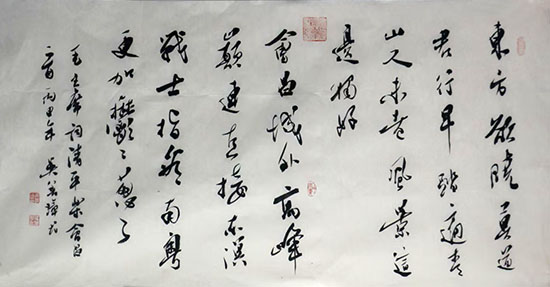 東方欲曉莫道
君行早踏遍青
山人未老風景這
邊獨好
會昌城外高峰
巔連直接东溟
戰士指看南粤
更加鬱々葱々
毛主席詞清平樂會昌
丙申年